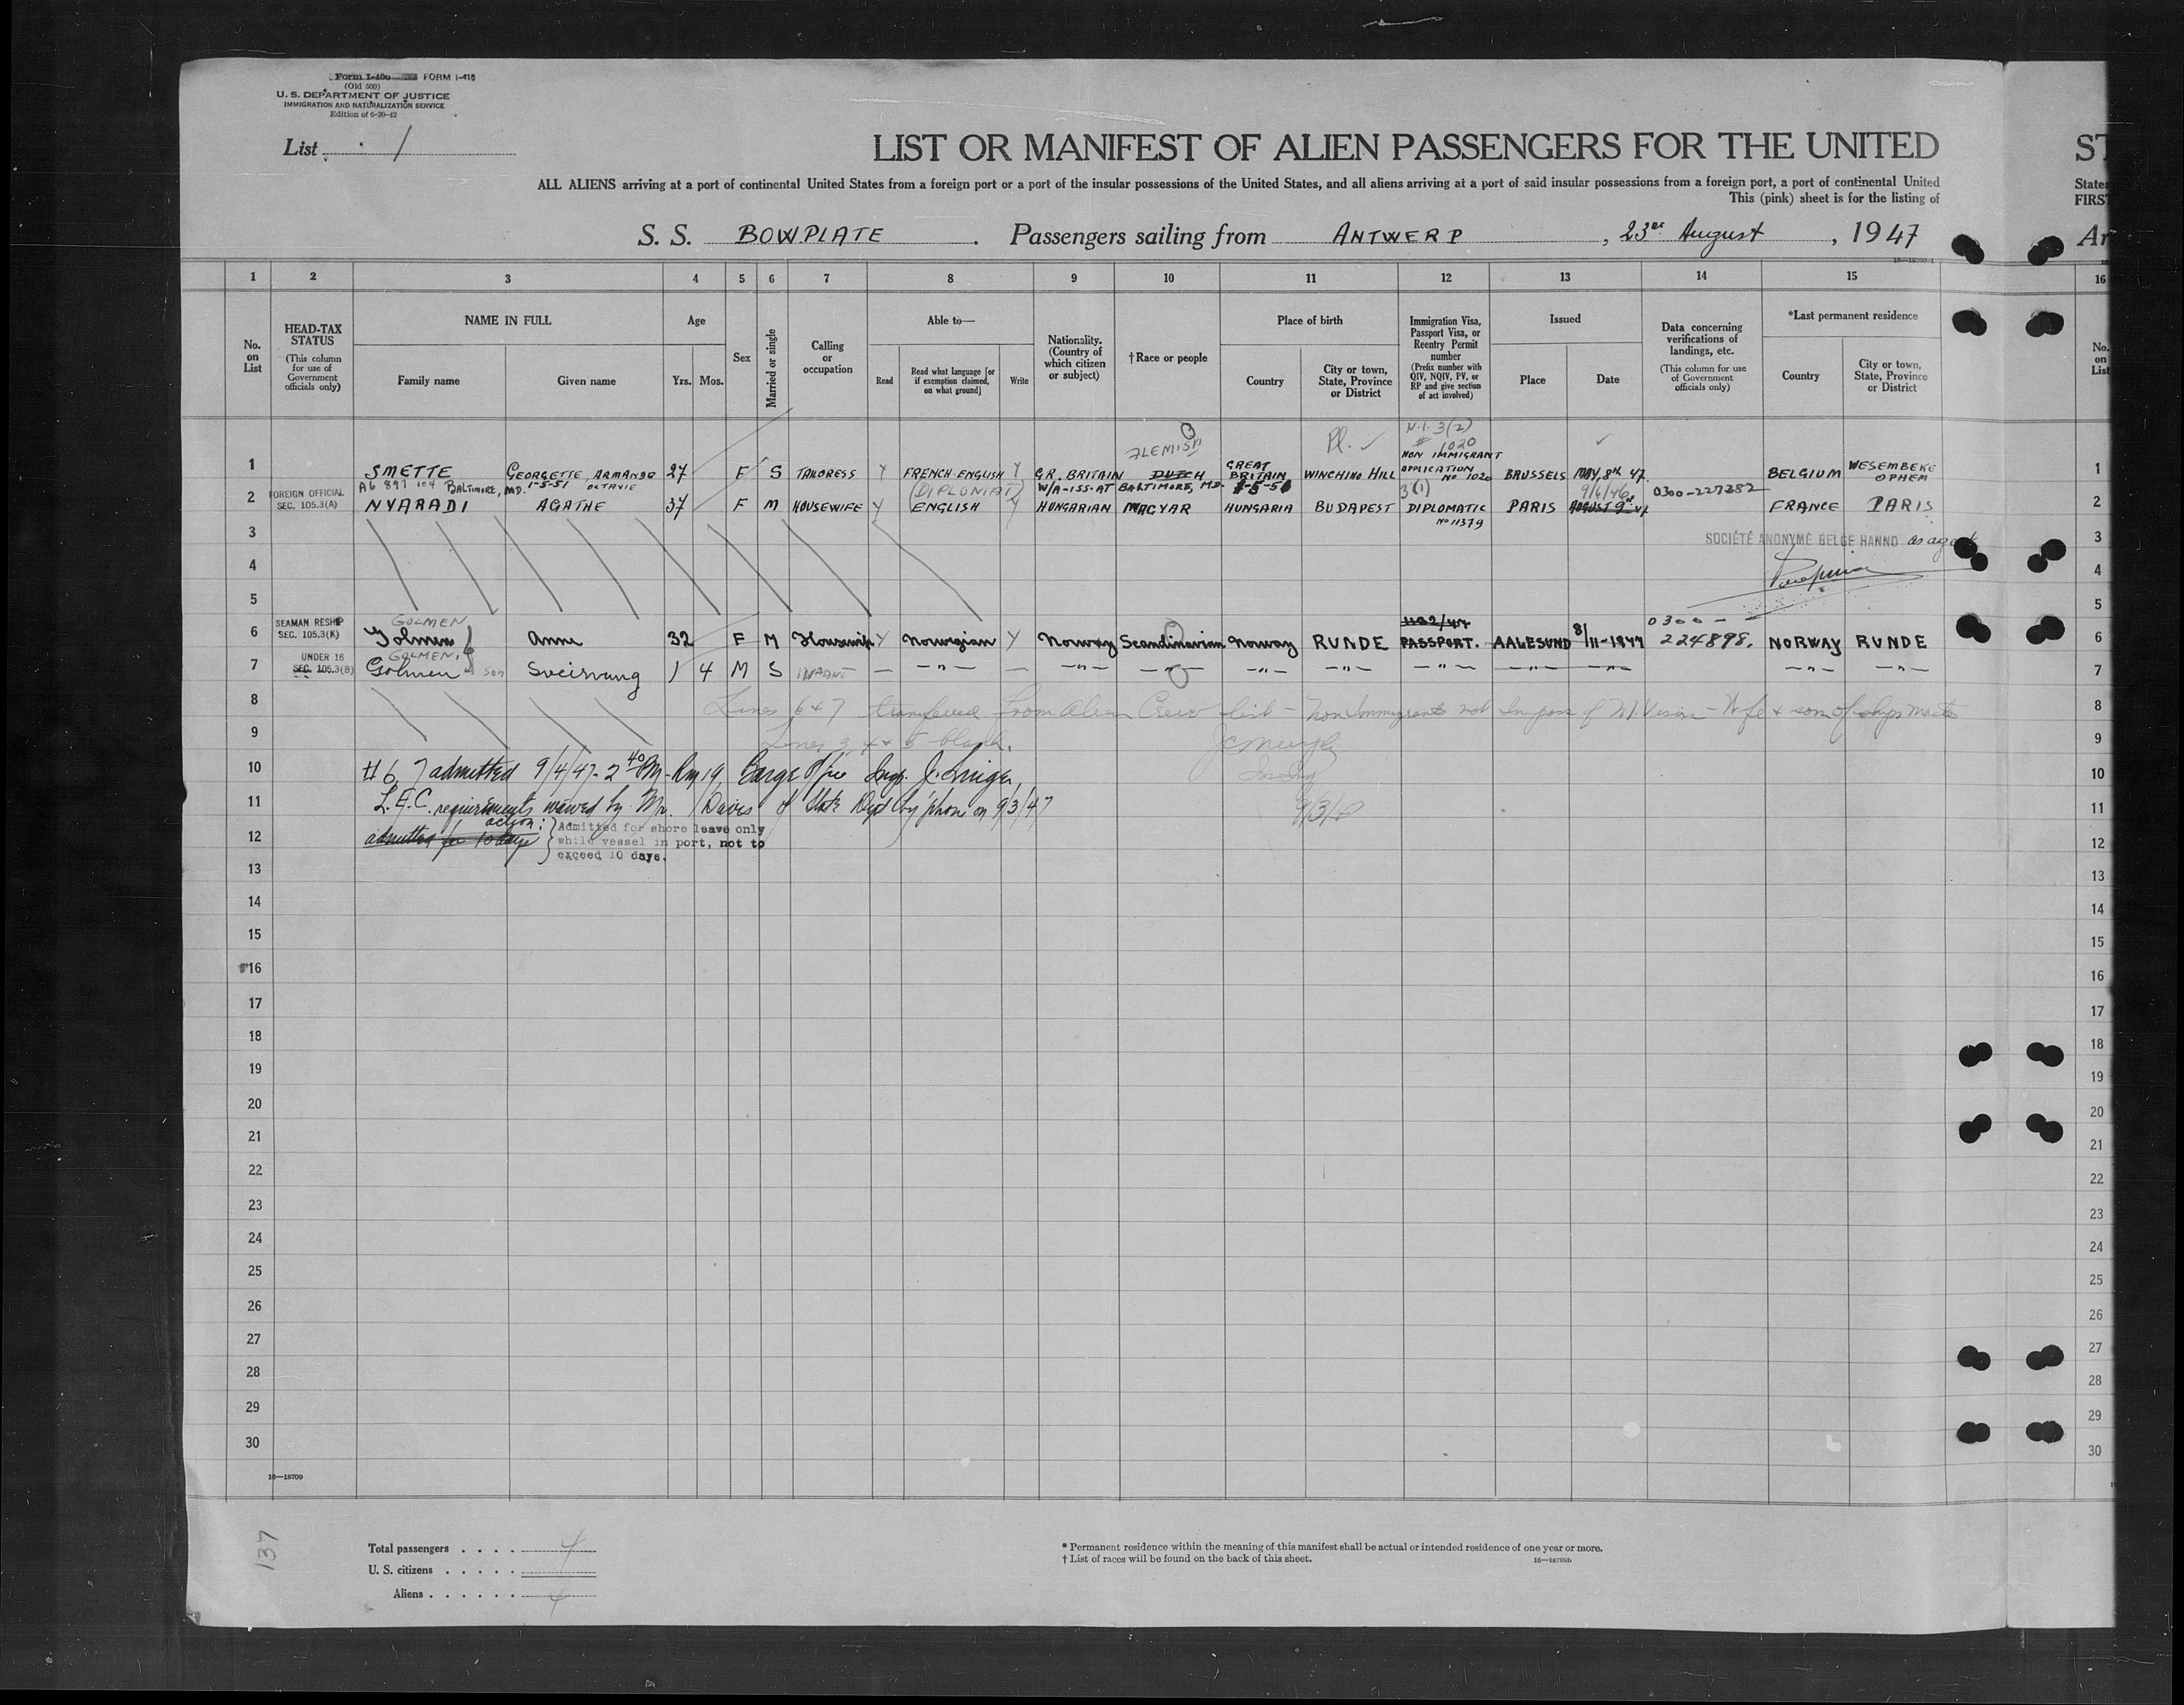 Form I-400 FORM I-415
(Old 500)
U. S. DEPARTMENT OF JUSTICE
IMMIGRATION AND NATURALIZATION SERVICE
Edition of 6-20-42
List 1
LIST OR MANIFEST OF ALIEN PASSENGERS FOR THE UNITED
ST
ALL ALIENS arriving at a port of continental United States from a foreign port or a port of the insular possessions of the United States, and all aliens arriving at a port of said insular possessions from a foreign port, a port of continental United
States
This (pink) sheet is for the listing of
FIRST
S. S. BOWPLATE . Passengers sailing from ANTWERP , 23rd August , 1947
Ar
16—18709-1
1 2 3 4 5 6 7 8 9 10 11 12 13 14 15 16
No. on List
HEAD-TAX STATUS
(This column for use of Government officials only)
NAME IN FULL
Family name
Given name
Age
Yrs. Mos.
Sex
Married or single
Calling or occupation
Able to—
Read
Read what language [or if exemption claimed, on what ground]
Write
Nationality. (Country of which citizen or subject)
†Race or people
Place of birth
Country
City or town, State, Province or District
Immigration Visa, Passport Visa, or Reentry Permit number
(Prefix number with QIV, NQIV, PV, or RP and give section of act involved)
Issued
Place
Date
Data concerning verifications of landings, etc.
(This column for use of Government officials only)
*Last permanent residence
Country
City or town, State, Province or District
No. on List
FLEMISH Pl. ✓ N.I. 3(2) # 1020 ✓
1 SMETTE GEORGETTE, ARMANDE OCTAVIE 27 F S TAILORESS Y FRENCH-ENGLISH Y GR. BRITAIN DUTCH GREAT BRITAIN WINCHING HILL NON IMMIGRANT APPLICATION No 1020 BRUSSELS MAY, 8th 47 BELGIUM WESEMBEKE OPHEM 1
A6 897 104 BALTIMORE, MD. 1-5-51 (DIPLOMAT) W/A-155-AT BALTIMORE, MD. 1-5-51 3(1) 9/6/46 0300-227382
2 FOREIGN OFFICIAL SEC. 105.3(A) NYARADI AGATHE 37 F M HOUSEWIFE Y ENGLISH Y HUNGARIAN MAGYAR HUNGARIA BUDAPEST DIPLOMATIC No 11379 PARIS AUGUST 9th 47 FRANCE PARIS 2
3 SOCIÉTÉ ANONYME BELGE HANNO as agent 3
4 4
5 5
GOLMEN 1102/47 0300-
6 SEAMAN RESHIP SEC. 105.3(K) Golmen Anne 32 F M Housewife Y Norwegian Y Norway Scandinavian Norway RUNDE PASSPORT. AALESUND 8/11-1947 224898. NORWAY RUNDE 6
GOLMEN,
7 UNDER 16 SEC. 105.3(B) Golmen son 1 4 M S INFANT — —"— — —"— —"— —"— —"— —"— —"— —"— —"— —"— 7
8 Lines 6 & 7 transferred from Alien Crew list - Non Immigrants not in poss of N.I. Visas - Wife & son of ships master 8
9 Lines 3, 4 & 5 blank. 9
10 #6, 7 admitted 9/4/47 - 2 40 PM - Rm 19, Barge Office Insp. J. 10
11 L.E.C. requirements waived by Mr. Davis of State Dept by 'phone on 9/3/47 9/3/47 11
12 admitted for 10 days action: Admitted for shore leave only 12
while vessel in port, not to
exceed 10 days.
13 13
14 14
15 15
16 16
17 17
18 18
19 19
20 20
21 21
22 22
23 23
24 24
25 25
26 26
27 27
28 28
29 29
30 30
16—18709
137
Total passengers . . . . 4
U. S. citizens . . . . .
Aliens . . . . . . 4
* Permanent residence within the meaning of this manifest shall be actual or intended residence of one year or more.
† List of races will be found on the back of this sheet. 16—18709b